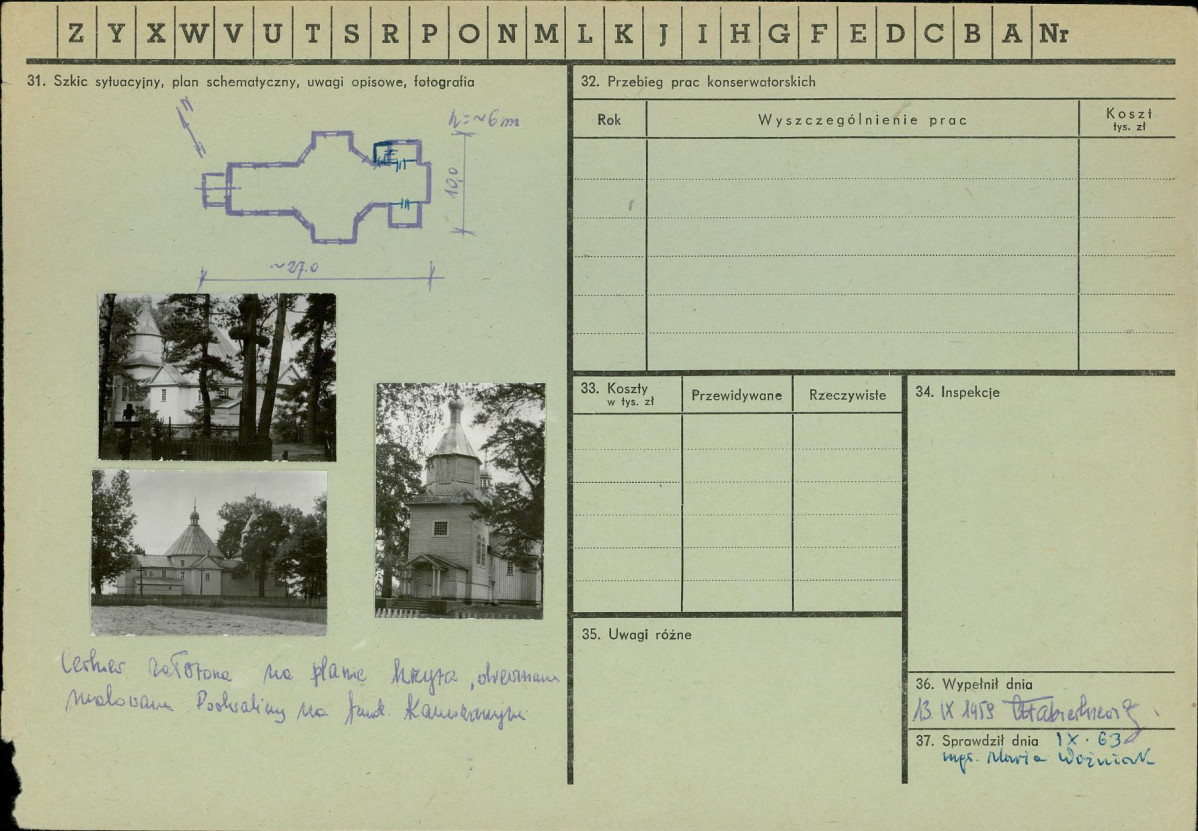 Z Y X W V U T S R P O N M L K J I H G F E D C B A Nr
31. Szkic sytuacyjny, plan schematyczny, uwagi opisowe, fotografia
N
h=~6m
10,0
~27.0
Cerkiew założona na planie krzyża, drewniana
malowana. Podwaliny na fund. Kamiennym
32. Przebieg prac konserwatorskich
Rok
Wyszczególnienie prac
Koszt
tys. zł
33. Koszty
w tys. zł
Przewidywane
Rzeczywiste
34. Inspekcje
35. Uwagi różne
36. Wypełnił dnia
13. IX 1959
37. Sprawdził dnia IX. 63
mgr. Maria Woźniak